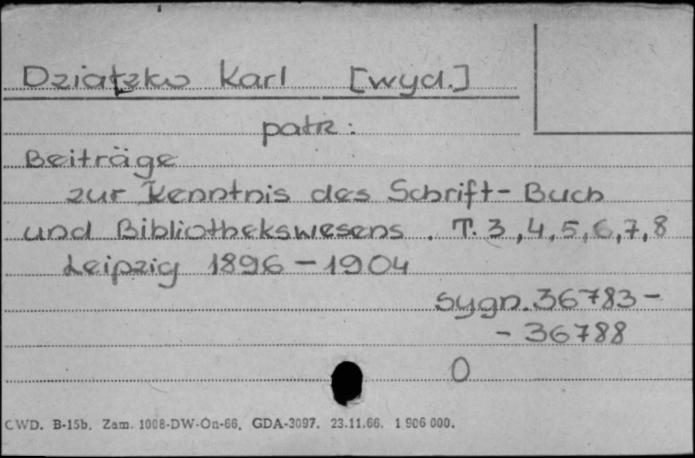 Dziatzko Karl [wyd.]
patrz:
Beiträge
zur Kenntnis des Schrift-Buch
und Bibliothekswesens. T. 3,4,5,6,7,8
Leipzig 1896-1904
sygn. 36783-
- 36788
O
CWD. B-15b. Zam. 1008-DW-On-66. GDA-3097. 23.11.66. 1 906 000.